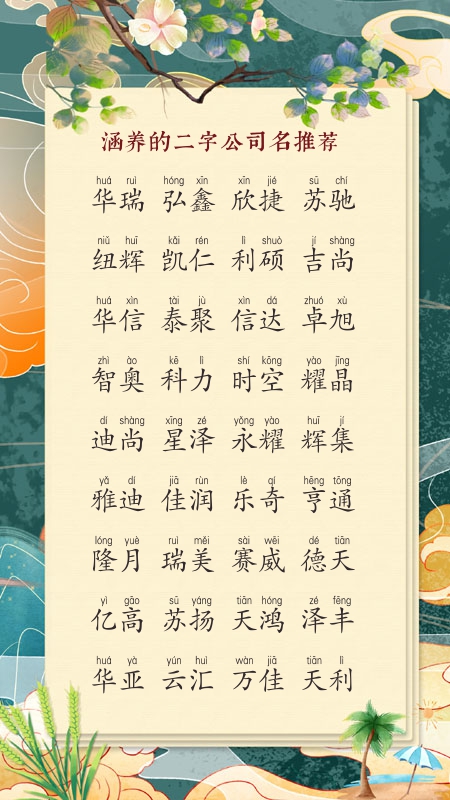 涵养的二字公司名推荐
huá ruì hóng xīn xīn jié sū chí
华瑞 弘鑫 欣捷 苏驰
niǔ huī kǎi rén lì shuò jí shàng
纽辉 凯仁 利硕 吉尚
huá xìn tài jù xìn dá zhuó xù
华信 泰聚 信达 卓旭
zhì ào kē lì shí kōng yào jīng
智奥 科力 时空 耀晶
dí shàng xīng zé yǒng yào huī jí
迪尚 星泽 永耀 辉集
yǎ dí jiā rùn lè qí hēng tōng
雅迪 佳润 乐奇 亨通
lóng yuè ruì měi sài wēi dé tiān
隆月 瑞美 赛威 德天
yì gāo sū yáng tiān hóng zé fēng
亿高 苏扬 天鸿 泽丰
huá yà yún huì wàn jiā tiān lì
华亚 云汇 万佳 天利